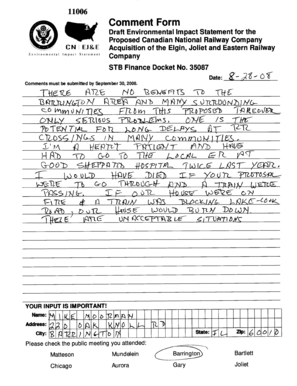 11006
Comment Form
Draft Environmental Impact Statement for the
Proposed Canadian National Railway Company
Acquisition of the Elgin, Joliet and Eastern Railway
Company
CN - EJ&E
Environmental Impact Statement
STB Finance Docket No. 35087
Date: 8-28-08
Comments must be submitted by September 30, 2008.
THERE ARE NO BENEFITS TO THE
BARRINGTON AREA AND MANY SURROUNDING
COMMUNITIES FROM THIS PROPOSED TAKEOVER
ONLY SERIOUS PROBLEMS. ONE IS THE
POTENTIAL FOR LONG DELAYS AT RR
CROSSINGS IN MANY COMMUNITIES.
I'M A HEART PATIENT AND HAVE
HAD TO GO TO THE LOCAL ER AT
GOOD SHEPPARD HOSPITAL TWICE LAST YEAR.
I WOULD HAVE DIED IF YOUR PROPOSAL
WERE TO GO THROUGH AND A TRAIN WERE
PASSING. IF OUR HOUSE WERE ON
FIRE & A TRAIN WAS BLOCKING LAKE-COOK
ROAD, OUR HOUSE WOULD BURN DOWN
THESE ARE UNACCEPTABLE SITUATIONS
YOUR INPUT IS IMPORTANT!
Name: MIKE MOORMAN
Address: 220 OAK KNOLL RD
City: BARRINGTON State: IL Zip: 60010
Please check the public meeting you attended:
Matteson Mundelein Barrington Bartlett
Chicago Aurora Gary Joliet